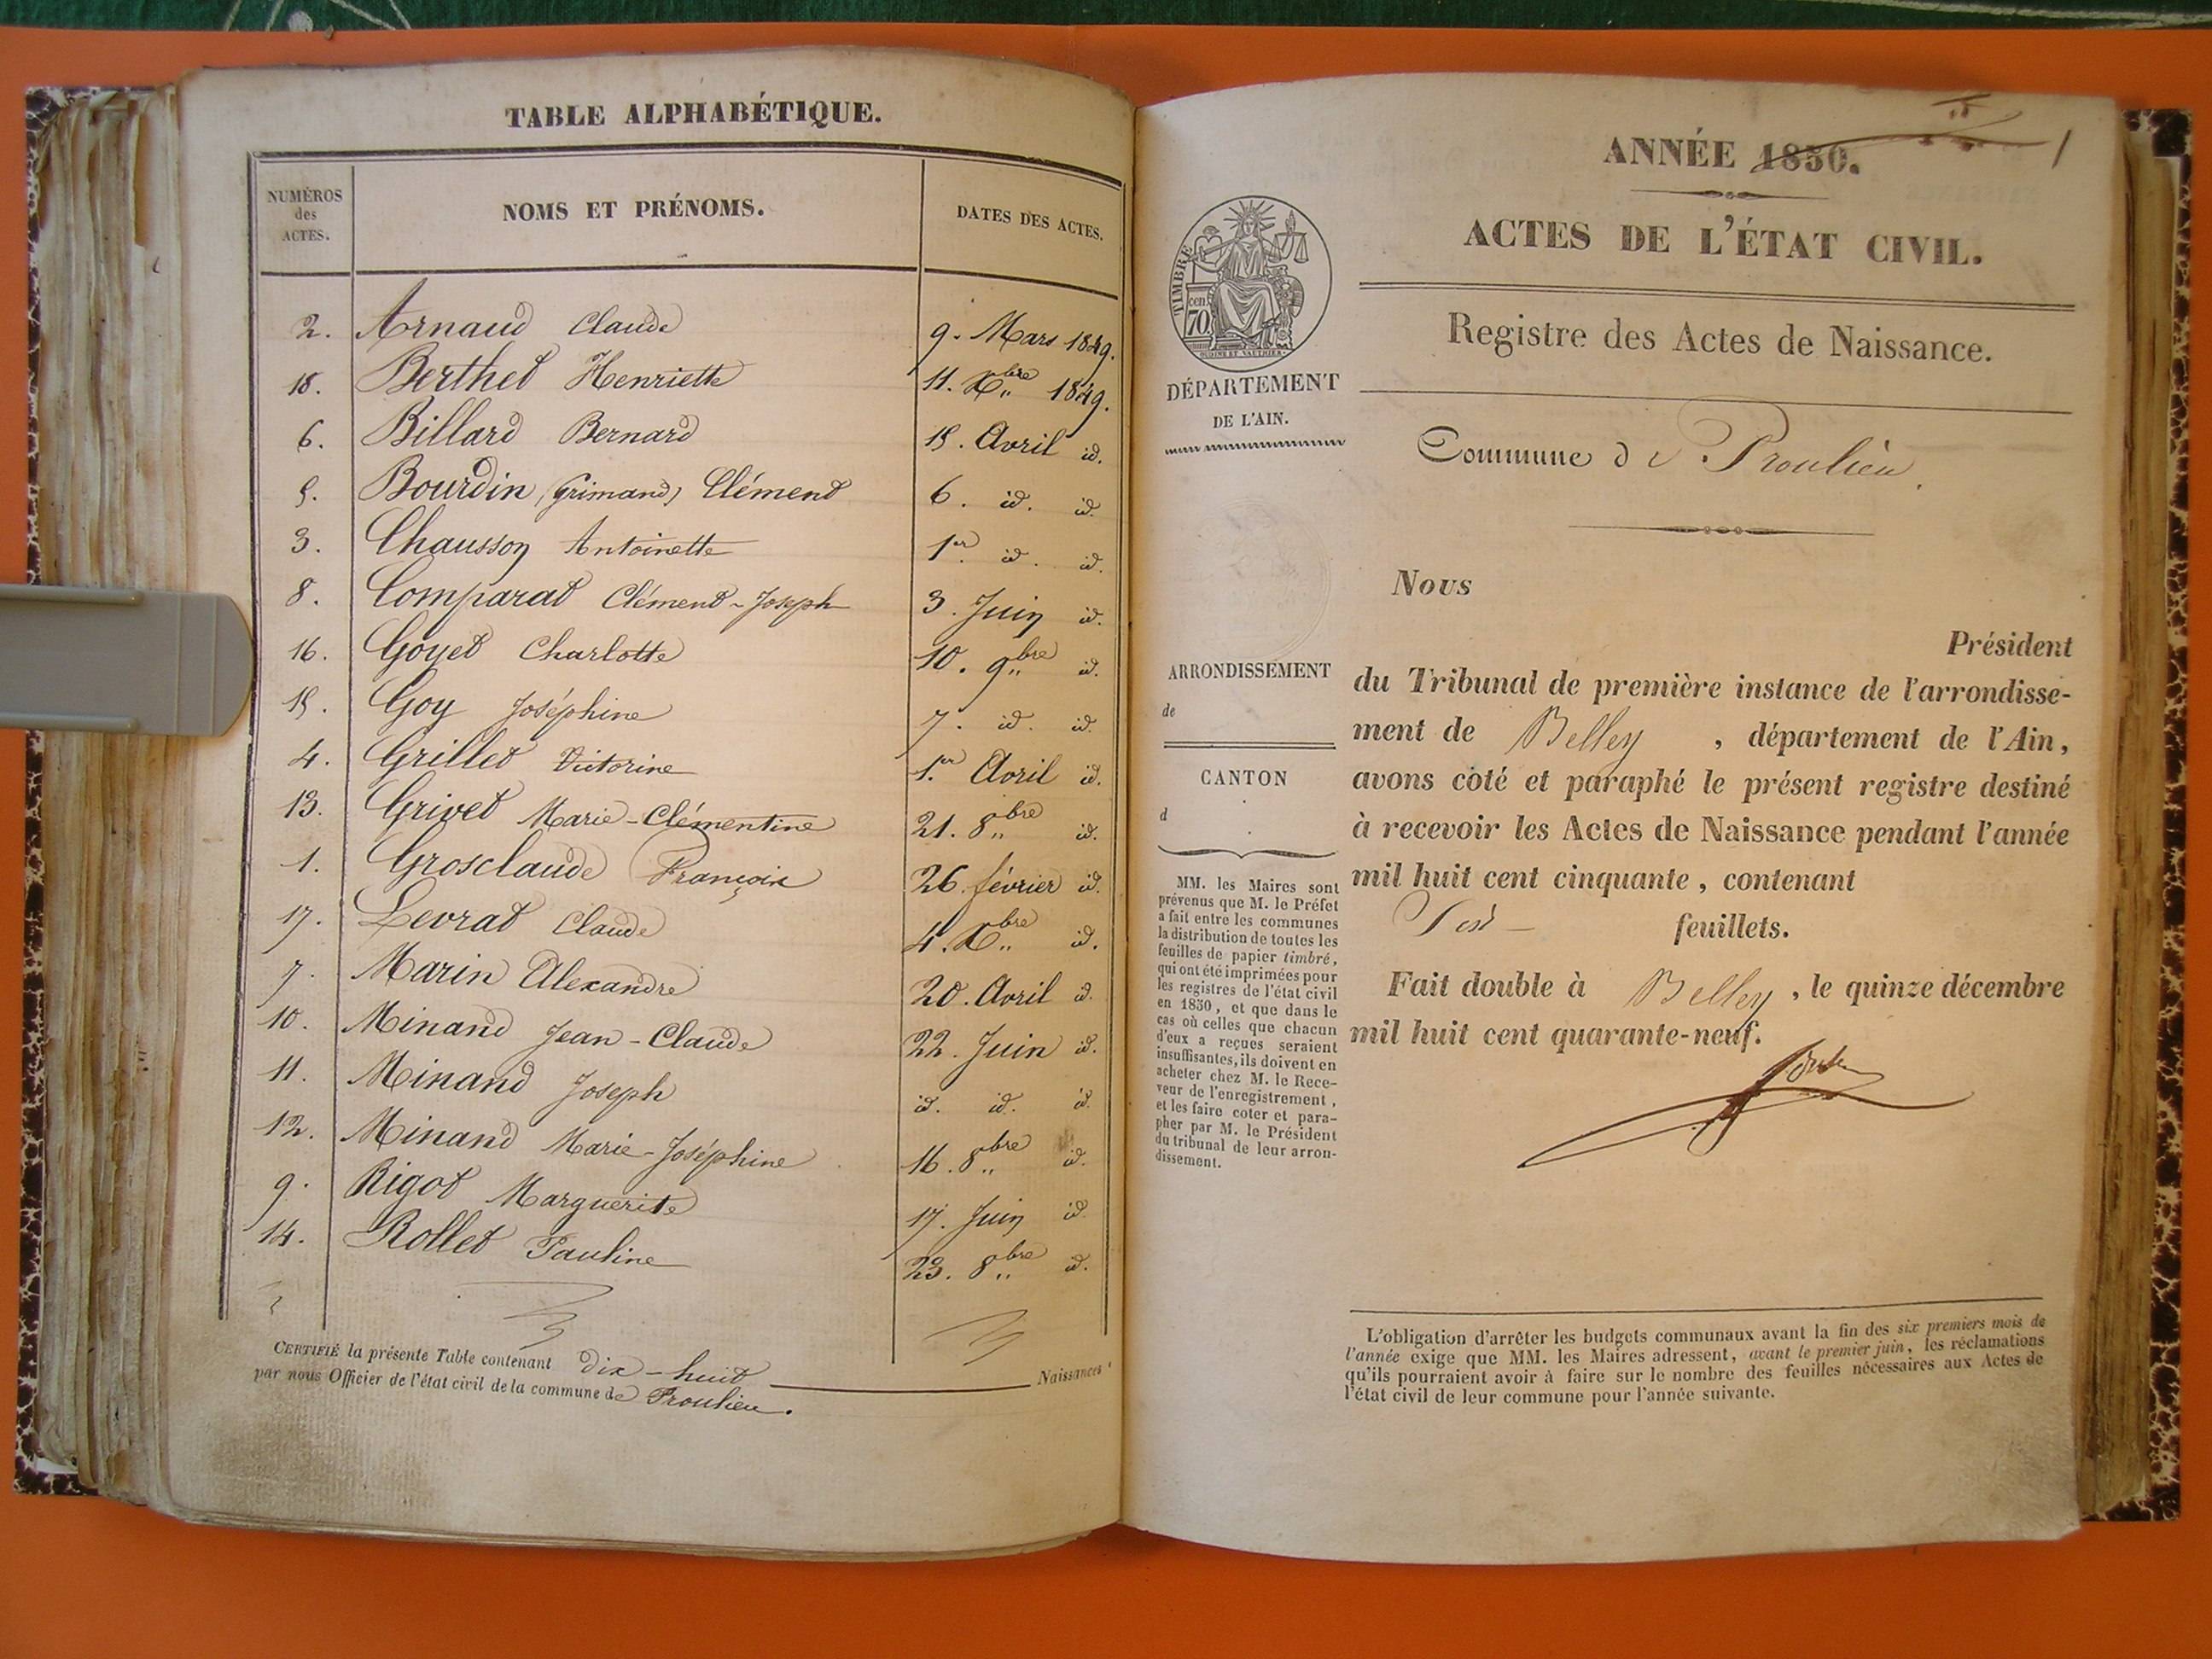 TABLE ALPHABÉTIQUE.
NUMÉROS des ACTES. NOMS ET PRÉNOMS. DATES DES ACTES.
2. Arnaud Claude 9. Mars 1849.
18. Berthet Henriette 11. Xbre 1849.
6. Billard Bernard 15. Avril id.
5. Bourdin (Grimand) Clément 6. id. id.
3. Chausson Antoinette 1er. id. id.
8. Comparat Clément-Joseph 3. Juin id.
16. Goyet Charlotte 10. 9bre id.
15. Goy Joséphine 7. id. id.
4. Grillet Victorine 1.er Avril id.
13. Grivet Marie-Clémentine 21. 8bre id.
1. Grosclaude François 26. février id.
17. Levrat Claude 4. Xbre id.
7. Marin Alexandre 20. Avril id.
10. Minand Jean-Claude 22. Juin id.
11. Minand Joseph id. id. id.
12. Minand Marie-Joséphine 16. 8bre id.
9. Rigot Marguerite 17. Juin id.
14. Rollet Pauline 23. 8bre id.
CERTIFIÉ la présente Table contenant dix-huit Naissances
par nous Officier de l'état civil de la commune de Proulieu.
ANNÉE 1850. 1
ACTES DE L'ÉTAT CIVIL.
Registre des Actes de Naissance.
TIMBRE
70 cen.
OUDINE ET VAUTHIER
DÉPARTEMENT
DE L'AIN.
Commune de Proulieu.
ARRONDISSEMENT
de
CANTON
d
MM. les Maires sont
prévenus que M. le Préfet
a fait entre les communes
la distribution de toutes les
feuilles de papier timbré,
qui ont été imprimées pour
les registres de l'état civil
en 1850, et que dans le
cas où celles que chacun
d'eux a reçues seraient
insuffisantes, ils doivent en
acheter chez M. le Rece-
veur de l'enregistrement,
et les faire coter et para-
pher par M. le Président
du tribunal de leur arron-
dissement.
Nous
Président
du Tribunal de première instance de l'arrondisse-
ment de Belley, département de l'Ain,
avons coté et paraphé le présent registre destiné
à recevoir les Actes de Naissance pendant l'année
mil huit cent cinquante, contenant
feuillets.
Fait double à Belley, le quinze décembre
mil huit cent quarante-neuf.
L'obligation d'arrêter les budgets communaux avant la fin des six premiers mois de
l'année exige que MM. les Maires adressent, avant le premier juin, les réclamations
qu'ils pourraient avoir à faire sur le nombre des feuilles nécessaires aux Actes de
l'état civil de leur commune pour l'année suivante.